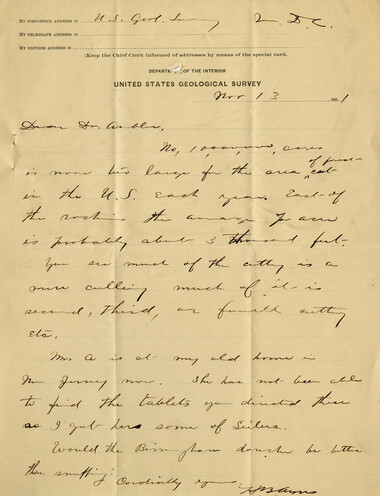 MY POST-OFFICE ADDRESS IS U.S. Geol. Survey D.C.
MY TELEGRAPH ADDRESS IS
MY EXPRESS ADDRESS IS
(Keep the Chief Clerk informed of addresses by means of the special card.
DEPARTMENT OF THE INTERIOR
UNITED STATES GEOLOGICAL SURVEY
Nov 13 1901
Dear Dr. Ambler,
No, 10,000,000, acres
is none too large for the area of forest cut
in the U.S. each year. East of
the rockies the average per acre
is probably about 3 thousand feet.
You see much of the cutting is a
mere culling much of it is
second, third, or fourth cutting
Etc.
Mrs A is at my old home in
New Jersey now. She has not been able
to find the tablets you directed there
so I got her some of
Would the Birmingham douche be better
than snuffing? Cordially yours
H B Ayres